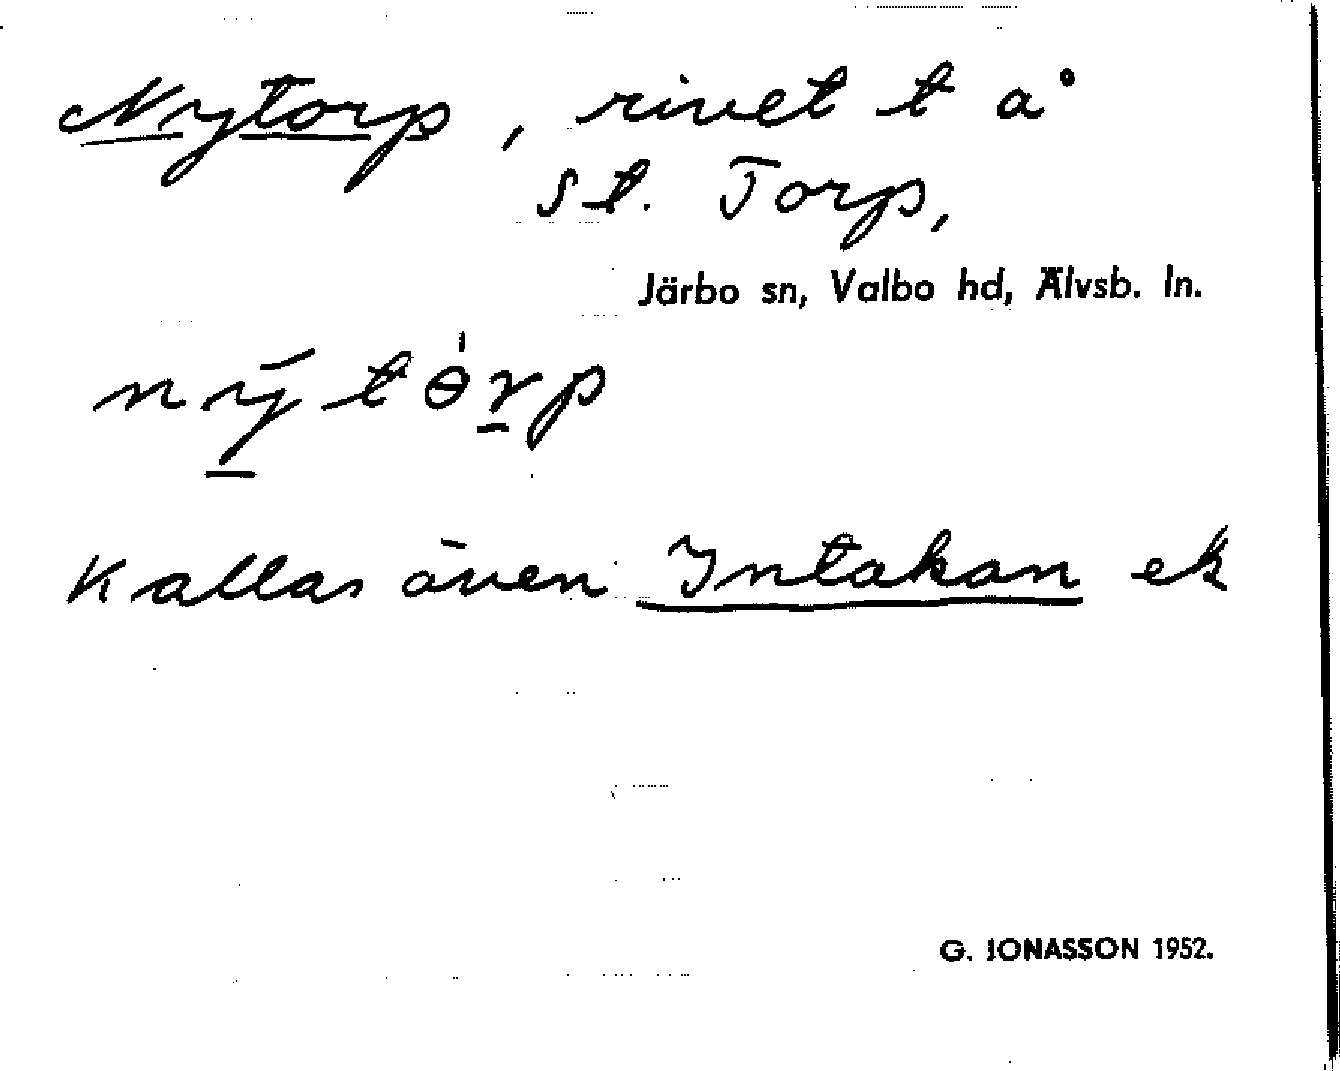 Nytorp, rivet t å
St. Torp,
Järbo sn, Valbo hd, Älvsb. ln.
nýtɵ́rp
Kallas även Intakan ek
G. JONASSON 1952.